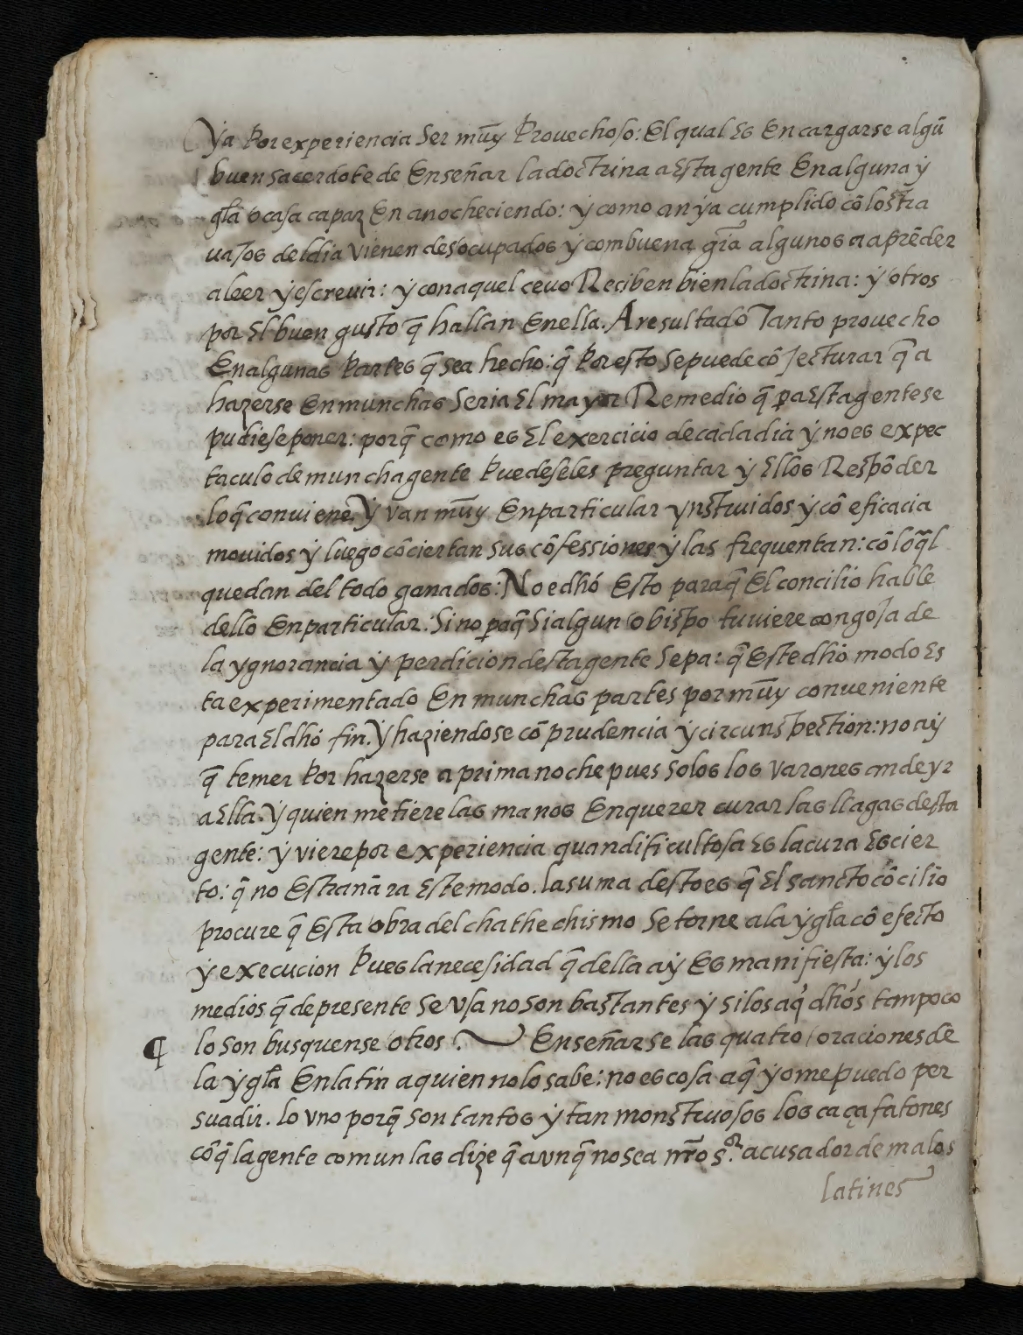 ya por experiencia ser mūy provechoso: El qual es Encargarse algū
buen sacerdote de Enseñar la doctrina a Esta gente En alguna ẏ
gl̃a o casa capaz En anocheciendo: ẏ como an ẏa cumplido cō los tra
uajos del dia vienen desocupados ẏ com buena gr̃a algunos a aprēder
a leer ẏ escreuir: ẏ con aquel ceuo Reciben bien la doctrina: ẏ otros
por El buen gusto q̄ hallan En ella. A resultado Tanto provecho
En algunas partes q̄ se a hecho: q̄ por esto se puede cōjecturar q̄ a
hazerse En munchas seria El mayor Remedio q̄ pa Esta gente se
pudiese poner: porq̄ como es El exercicio de cada dia ẏ no es expec
taculo de muncha gente puedeseles preguntar ẏ Ellos Respōder
lo q̄ conuiene. Ẏ van mūy En particular ynstruidos ẏ cō eficacia
mouidos ẏ luego cōciertan sus cōfessiones ẏ las frequentan: cō lo q̄l
quedan del todo ganados: No e dho Esto para q̄ El concilio hable
dello En particular: Si no pa q̄ si algun obispo tuviere congoja de
la ygnorancia ẏ perdicion desta gente sepa: q̄ Este dho modo Es
ta experimentado En munchas partes por mūy conveniente
para El dho fin. Ẏ haziendose cō prudencia ẏ circunspection: no aẏ
q̄ temer por hazerse a prima noche pues solos los varones an de yr
a Ella. Ẏ quien metiere las manos En querer curar las llagas desta
gente: ẏ viere por experiencia quan dificultosa es la cura Es cier
to: q̄ no Estrañara Este modo. la suma desto es q̄ El sancto cōcilio
procure q̄ Esta obra del chathechismo se torne a la ẏgl̃a cō efecto
ẏ execucion pues la necesidad q̄ della aẏ Es manifiesta: ẏ los
medios q̄ de presente se vsa no son bastantes ẏ si los aq̄ dhos tampoco
¶ lo son busquense otros. Enseñarse las quatro oraciones de
la ẏgl̃a En latin a quien no lo sabe: no es cosa a q̄ ẏo me puedo per
suadir. lo vno porq̄ son tantos ẏ tan monstruosos los caçafatones
cō q̄ la gente comun las dize q̄ avnq̄ no sea nr̃o s.or acusador de malos
latines